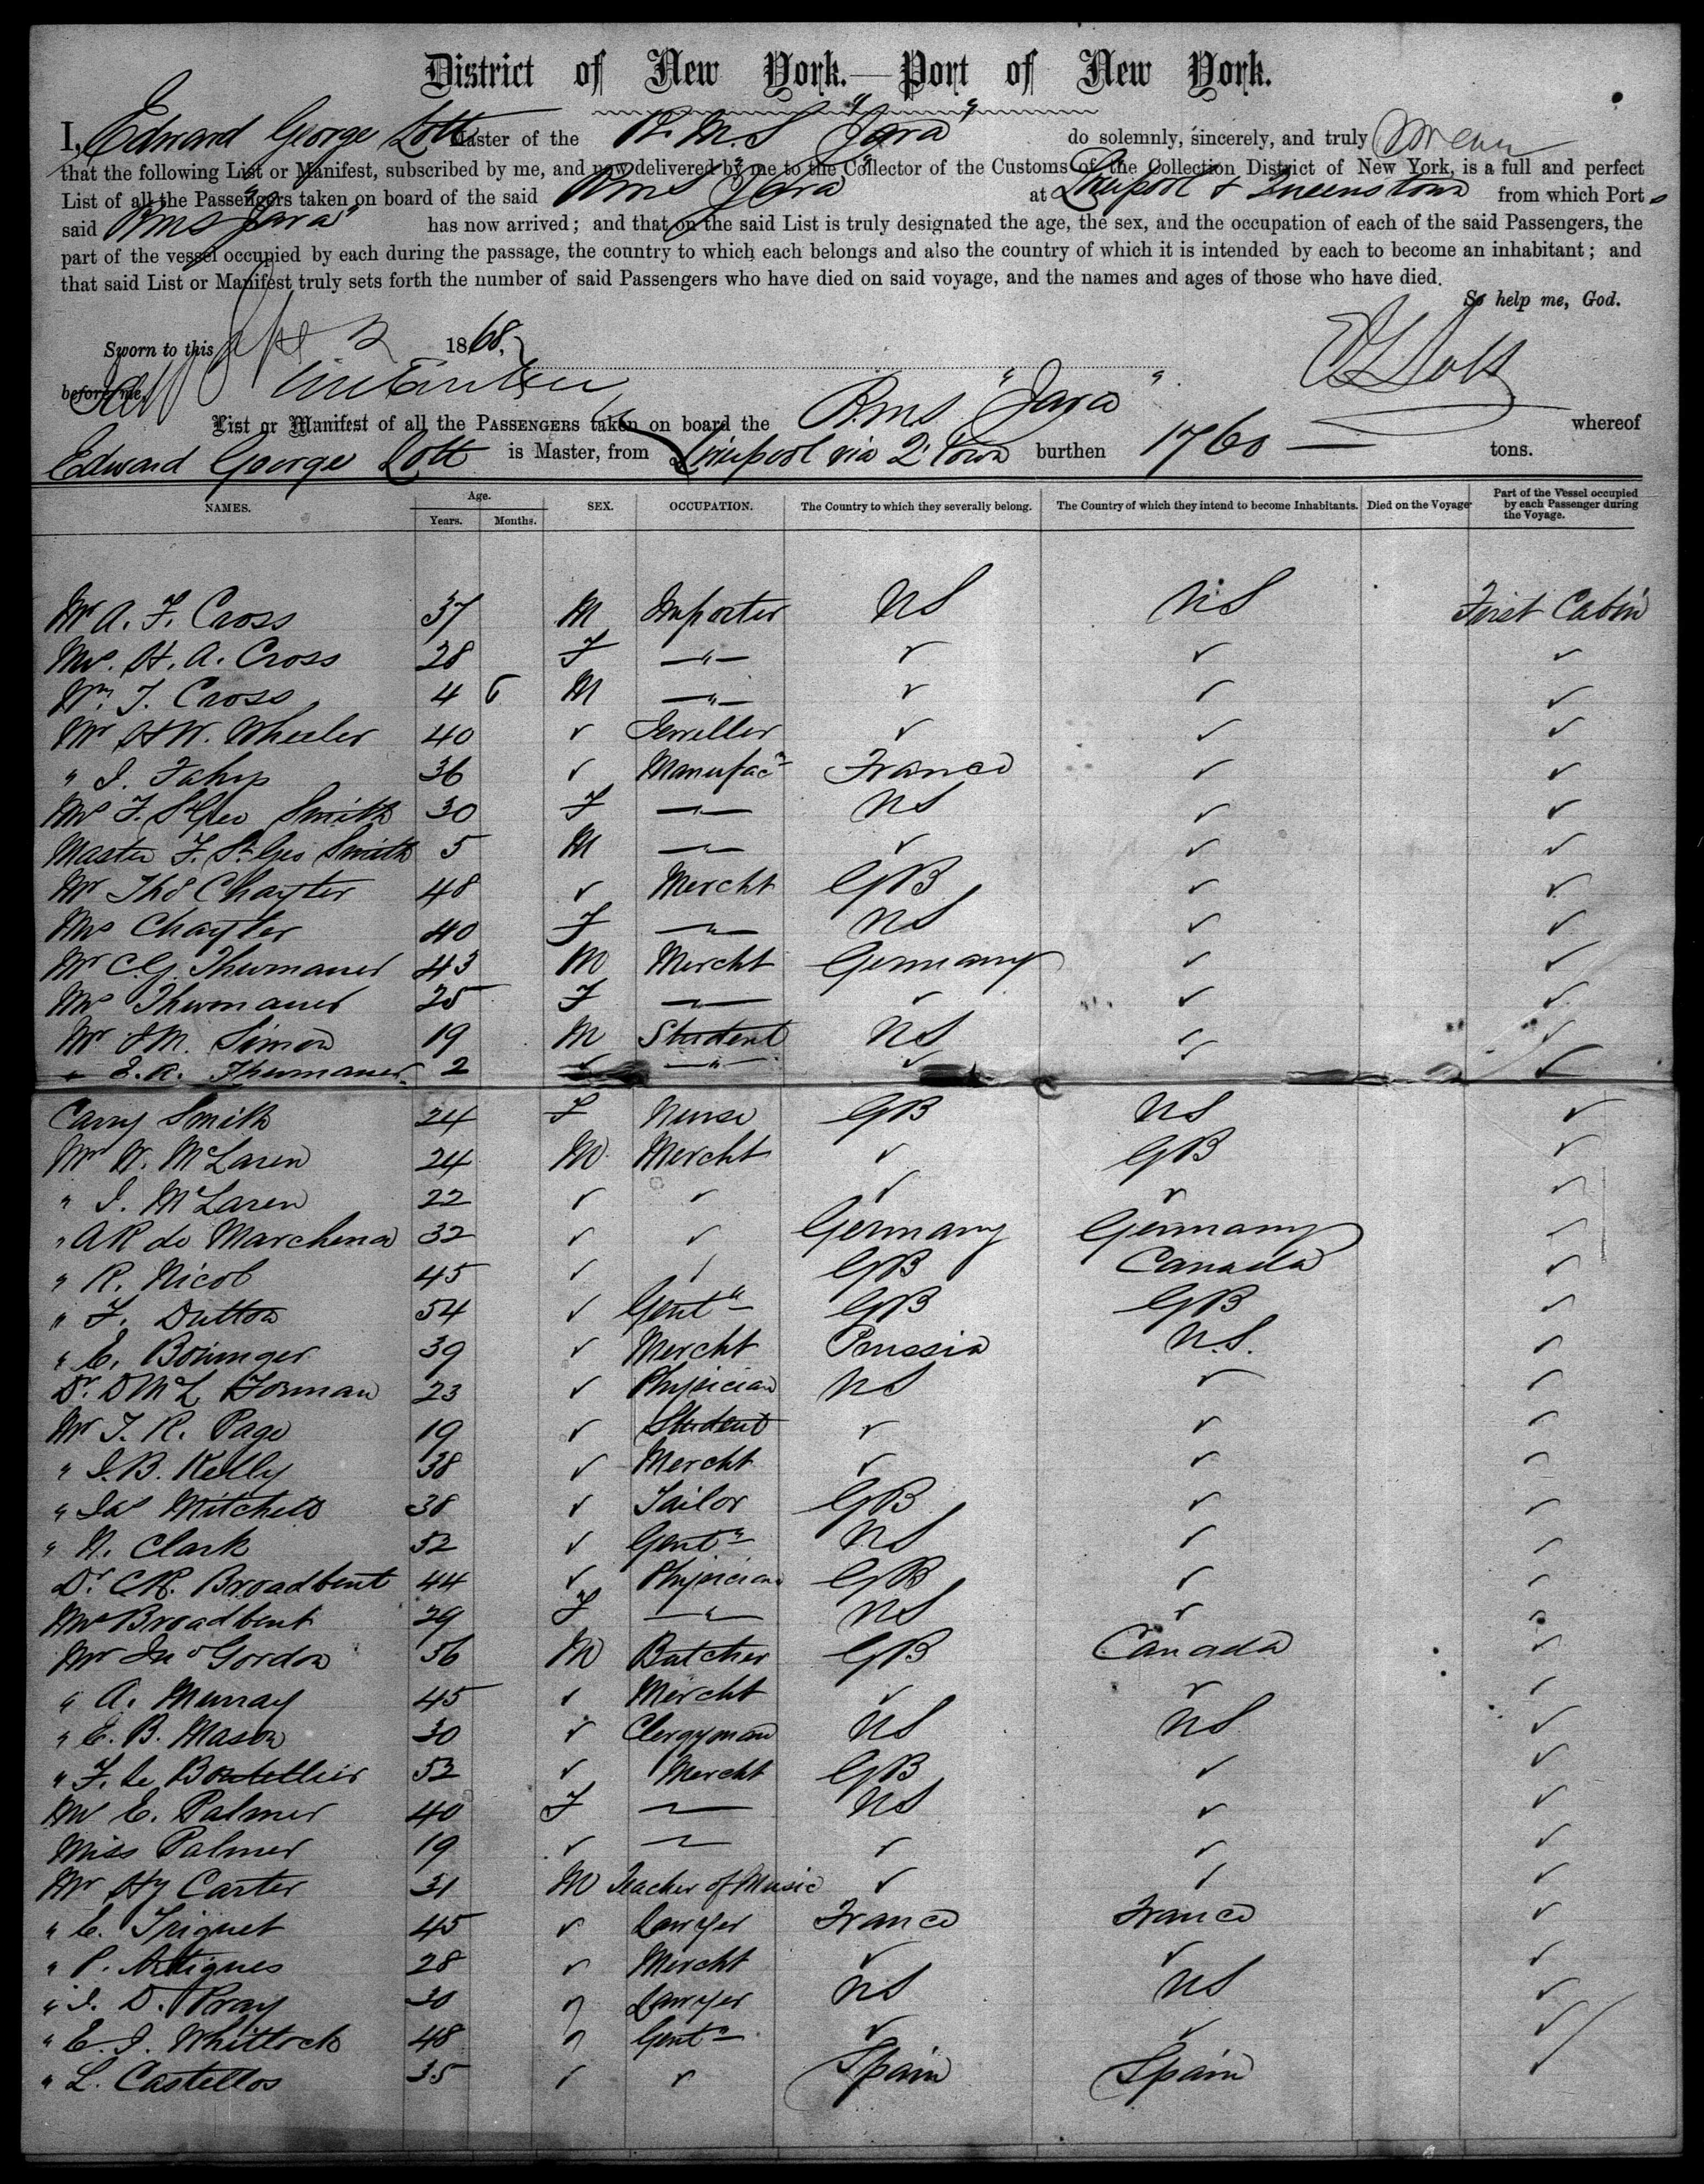 District of New York.—Port of New York.
I, Edward George Lott Master of the R.M.S "Java" do solemnly, sincerely, and truly swear
that the following List or Manifest, subscribed by me, and now delivered by me to the Collector of the Customs of the Collection District of New York, is a full and perfect
List of all the Passengers taken on board of the said RMS "Java" at Liverpool & Queenstown from which Ports
said RMS "Java" has now arrived; and that on the said List is truly designated the age, the sex, and the occupation of each of the said Passengers, the
part of the vessel occupied by each during the passage, the country to which each belongs and also the country of which it is intended by each to become an inhabitant; and
that said List or Manifest truly sets forth the number of said Passengers who have died on said voyage, and the names and ages of those who have died.
So help me, God.
Sworn to this 2 1868,
before me, E G Lott
List or Manifest of all the PASSENGERS taken on board the R.M.S "Java" whereof
Edward George Lott is Master, from Liverpool via Q'Town burthen 1760 — tons.
NAMES. Age. Years. Months. SEX. OCCUPATION. The Country to which they severally belong. The Country of which they intend to become Inhabitants. Died on the Voyage Part of the Vessel occupied by each Passenger during the Voyage.
Mr A. F. Cross 37 M Importer US US First Cabin
Mrs. H. A. Cross 28 F —"— ✓ ✓ ✓
Wm J. Cross 4 6 M —"— ✓ ✓ ✓
Mr H W. Wheeler 40 ✓ Jeweller ✓ ✓ ✓
" J. Fahys 36 ✓ Manufacr France ✓ ✓
Mrs F. St Geo Smith 30 F —"— US ✓ ✓
Master F. St Geo Smith 5 M —"— ✓ ✓ ✓
Mr Thos Chayter 48 ✓ Mercht GB ✓ ✓
Mrs Chayter 40 F —"— US ✓ ✓
Mr C. G. Thurmauer 43 M Mercht Germany ✓ ✓
Mrs Thurmauer 25 F —"— ✓ ✓ ✓
Mr J M. Simon 19 M Student US ✓ ✓
" E. A. Thurmauer 2 ✓ —"— ✓ ✓
Carry Smith 24 F Nurse GB US ✓
Mr W. McLaren 24 M Mercht ✓ GB ✓
" J. McLaren 22 ✓ ✓ ✓ ✓ ✓
" A R de Marchena 32 ✓ ✓ Germany Germany ✓
" R. Nicol 45 ✓ ✓ GB Canada ✓
" F. Dutton 54 ✓ Gentn GB GB ✓
" E. Boninger 39 ✓ Mercht Prussia U.S. ✓
Dr. D McL Forman 23 ✓ Physician US ✓ ✓
Mr T. R. Page 19 ✓ Student ✓ ✓ ✓
" J. B. Kelly 38 ✓ Mercht ✓ ✓ ✓
" Jas Mitchell 38 ✓ Tailor GB ✓ ✓
" N. Clark 52 ✓ Gentn US ✓ ✓
Dr. C R. Broadbent 44 ✓ Physician GB ✓ ✓
Mrs Broadbent 29 F —"— US ✓ ✓
Mr Jno Gordon 56 M Butcher GB Canada ✓
" A. Murray 45 ✓ Mercht ✓ ✓ ✓
" E. B. Mason 30 ✓ Clergyman US US ✓
" F. Le Boutellier 52 ✓ Mercht GB ✓ ✓
Mrs E. Palmer 40 F —"— US ✓ ✓
Miss Palmer 19 ✓ —"— ✓ ✓ ✓
Mr Hy Carter 31 M Teacher of Music ✓ ✓ ✓
" C. Triquet 45 ✓ Lawyer France France ✓
" P. Artigues 28 ✓ Mercht ✓ ✓ ✓
" J. D. Pray 30 ✓ Lawyer US US ✓
" E. J. Whitlock 48 ✓ Gentn ✓ ✓ ✓
" L. Castellos 35 ✓ ✓ Spain Spain ✓